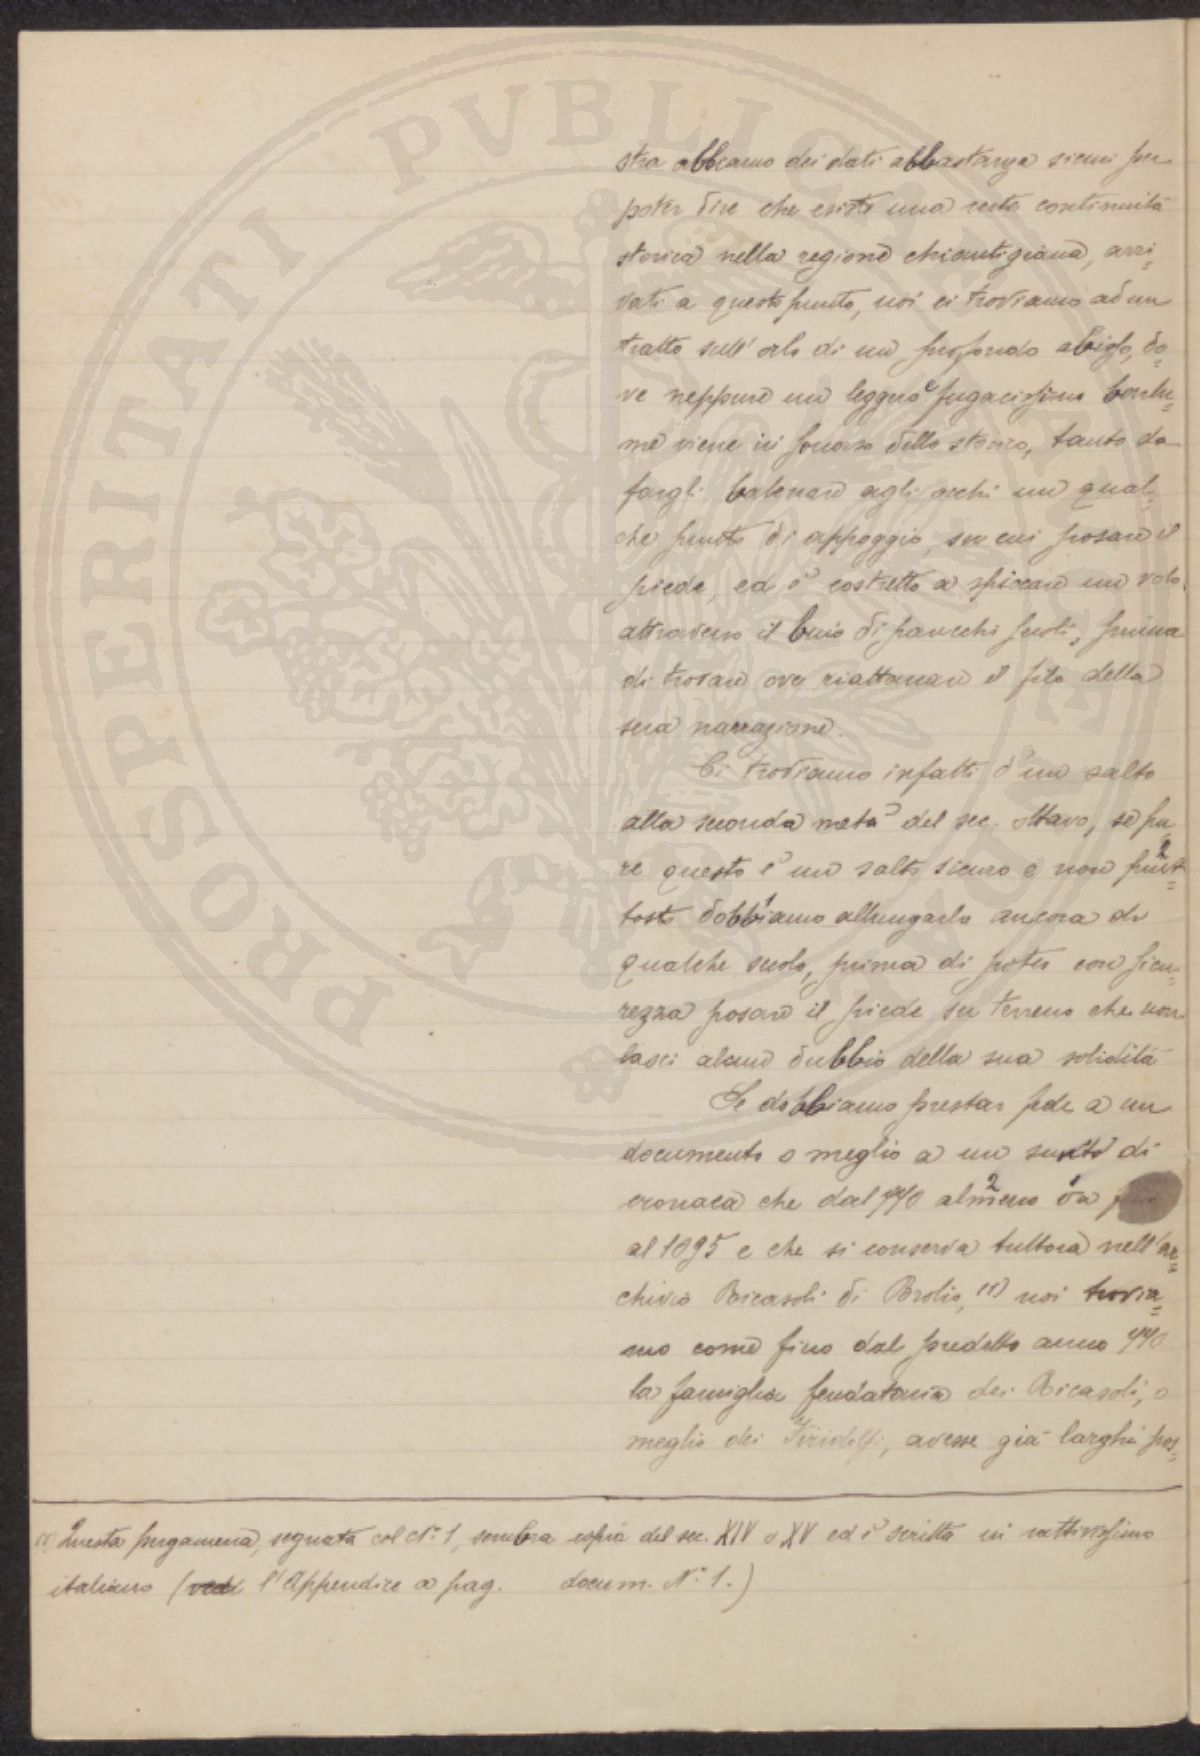 stra abbiamo dei dati abbastanza sicuri per
poter dire che esiste una certa continuità
storica nella regione chiantigiana, arri-
vati a questo punto, noi ci troviamo ad un
tratto sull'orlo di un profondo abisso, do-
ve neppure un leggero e fugacissimo barlu-
me viene in soccorso dello storico, tanto da
fargli balenare agli occhi un qual-
che punto di appoggio, su cui posare il
piede, ed è costretto a spiccare un volo
attraverso il buio di parecchi secoli, prima
di trovare ove riattaccare il filo della
sua narrazione.
Ci troviamo infatti d'un salto
alla seconda metà del sec. ottavo, se pu-
re questo è un salto sicuro e non piut-
tosto dobbiamo allungarlo ancora di
qualche secolo, prima di poter con sicu-
rezza posare il piede su terreno che non
lasci alcun dubbio della sua solidità
Se dobbiamo prestar fede a un
documento o meglio a un sunto di
cronaca che dal 770 almeno va fino
al 1095 e che si conserva tuttora nell'ar-
chivio Ricasoli di Brolio, (1) noi trovia-
mo come fino dal predetto anno 770
la famiglia feudataria dei Ricasoli, o
meglio dei Firidolfi, avesse già larghi pos-
(1) Questa pergamena, segnata col N° 1, sembra copia del sec. XIV o XV ed è scritta in cattivissimo
italiano (vedi l'Appendice a pag. docum. N° 1.)
PROSPERITATI PUBLICAE